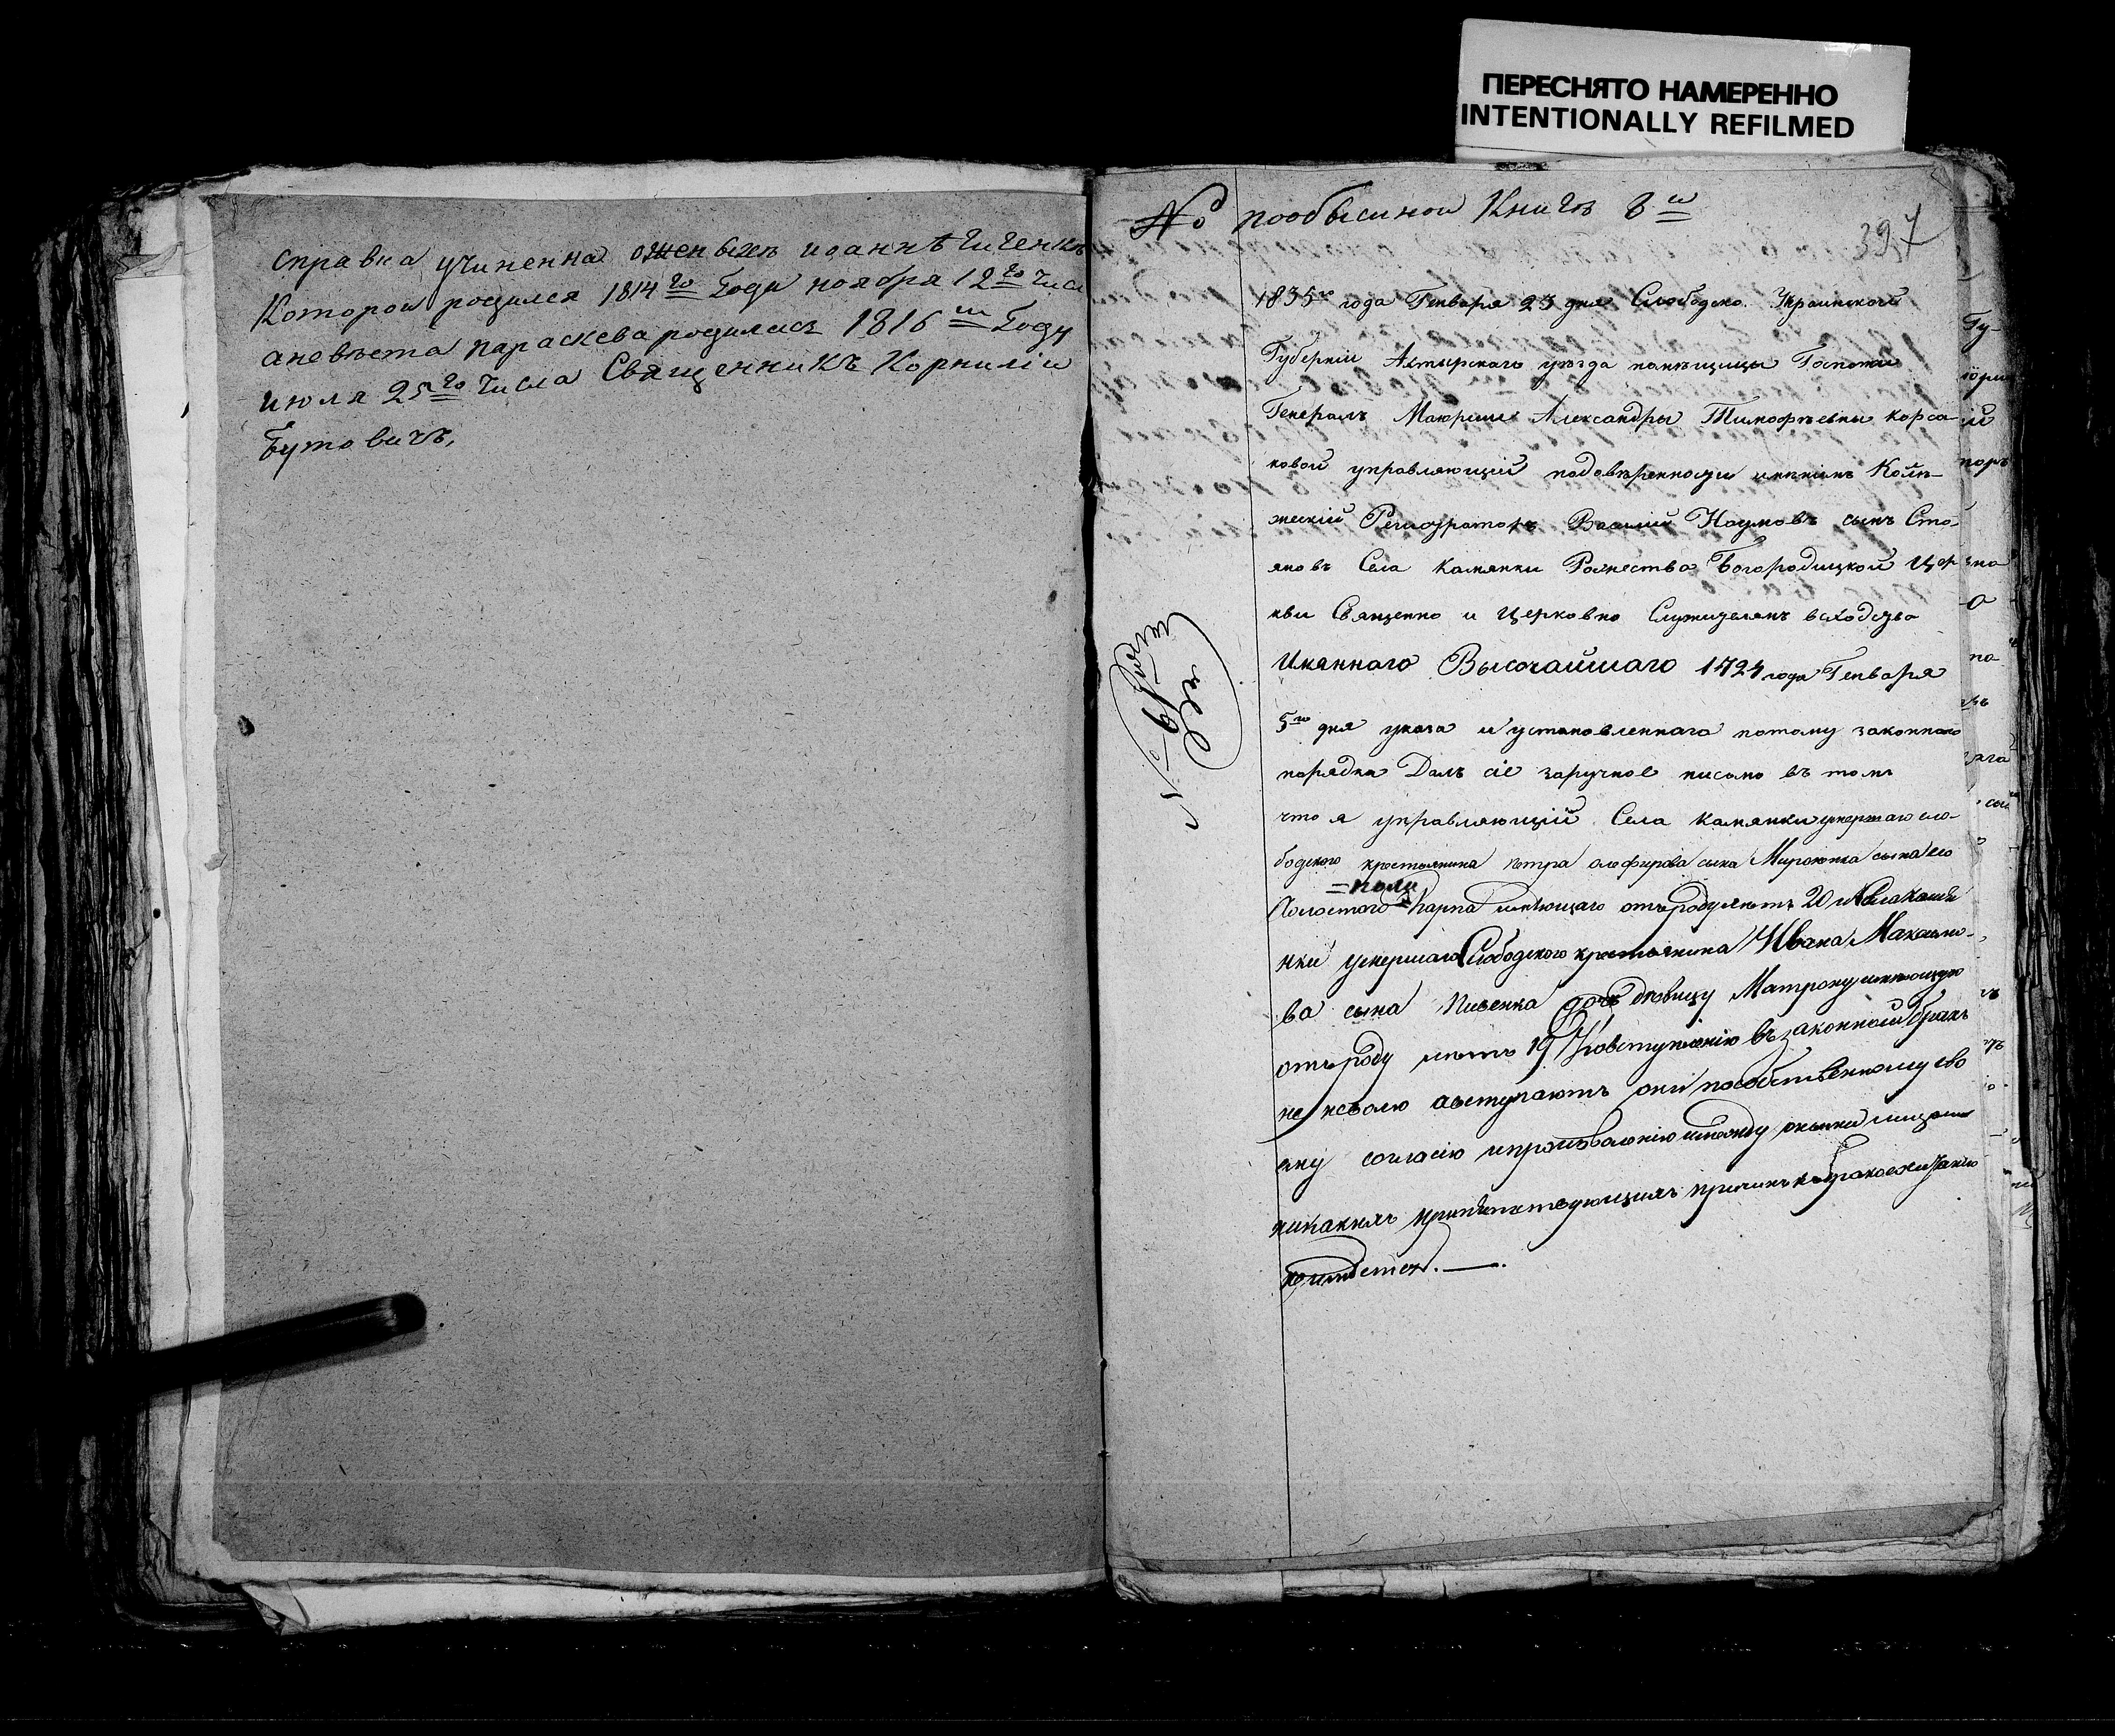 ПЕРЕСНЯТО НАМЕРЕННО
INTENTIONALLY REFILMED
справка учиненна оженыхѣ иоаннѣ Гиченкѣ
Которои родился 1814го Года ноября 12го Числ
аневѣста параскева родилась 1816ш Году
июля 25го Числа Священникъ Корнилiи
Бутовичъ.
№ пообыскнои Книгѣ 8и
397
1835го года Генваря 23 дня Слободско Украинской
Губернiи Ахтырскаго уѣзда помѣщицы Госпожи
Генералъ Маiорши Александры Тимофѣевны Корса-
ковой управляющiй подовѣренности имѣнiемъ Колѣ-
жескiй Регистраторъ Василiй Наумовъ сынъ Сто-
яновъ Села Камянки Рожества Богородицкой Цер
кви Священно и Церковно Служителямъ всходство
Имяннаго Высочайшаго 1724 года Генваря
5го дня указа и установленнаго потому законнаго
порядка Далъ сiе заручное писмо въ томъ
что я управляющiй Села Камянки умершаго сло-
бодского крестьянина петра сына сына его
поли
Холостого карпа имѣющаго отъроду лѣтъ 20
нки умершаго Слободского крестьянина Ивана Максимо-
ва сына дочь дѣвицу Матрону имѣющую
отъроду лѣтъ 19 Ковступленiю въ законной бракъ
не неволю авступаютъ они пособственному сво
ему согласiю ипроизволенiю имежду оными лицами
никакихъ препятствующихъ причинъ
неимѣется.